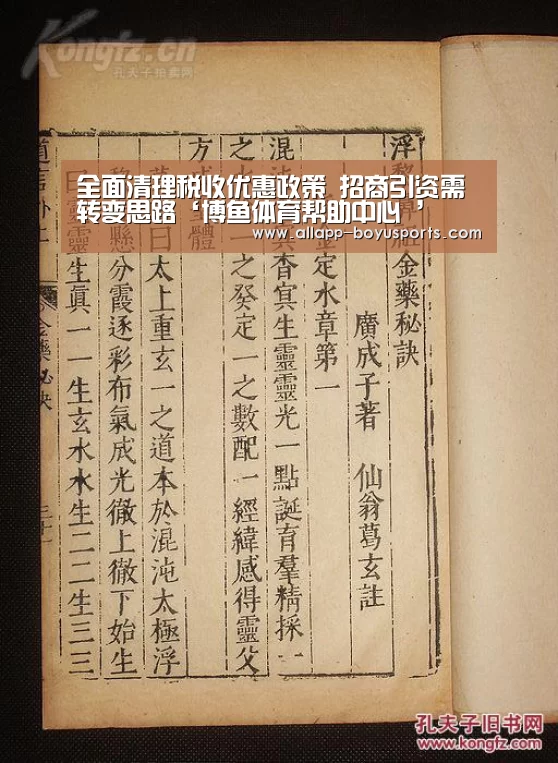 Kongfz.cn
孔夫子拍卖网
全面清理税收优惠政策 招商引资需
转变思路‘博鱼体育帮助中心’
www.allapp-boyusports.com
浮 金藥秘訣
廣成子著 仙翁葛玄註
定水章第一
混 冥杳冥生靈靈光一點誕育羣精採一
之 一之癸定一之數配一經緯感得靈父
方 體
曰太上重玄一之道本於混沌太極浮
懸分霞逐彩布氣成光徹上徹下始生
曰 靈生眞一一生玄水水生二二生三三
道言外 金藥秘訣
孔夫子旧书网
www.kongfz.com